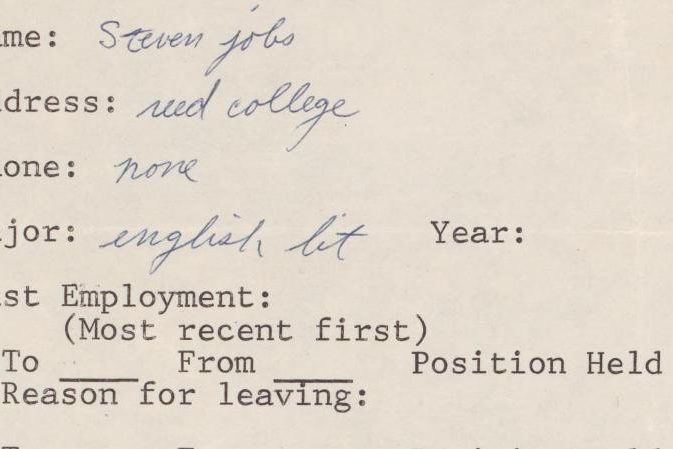 ame: Steven jobs
ddress: reed college
one: none
jor: english lit Year:
st Employment:
(Most recent first)
To ____ From ____ Position Held
Reason for leaving: